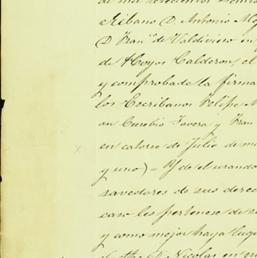 cribano D. Antonio
D. Fran.co de Valdivieso en
de Hoyos Calderon, el
y comprobada la firma
los Escribanos Felipe
on Eusebio Tavera y Fran
en catorce de Julio de m
y uno) = Y de el
savedores de sus derec
caso les pertenece de
y como mejor haya lug
Nicolas en